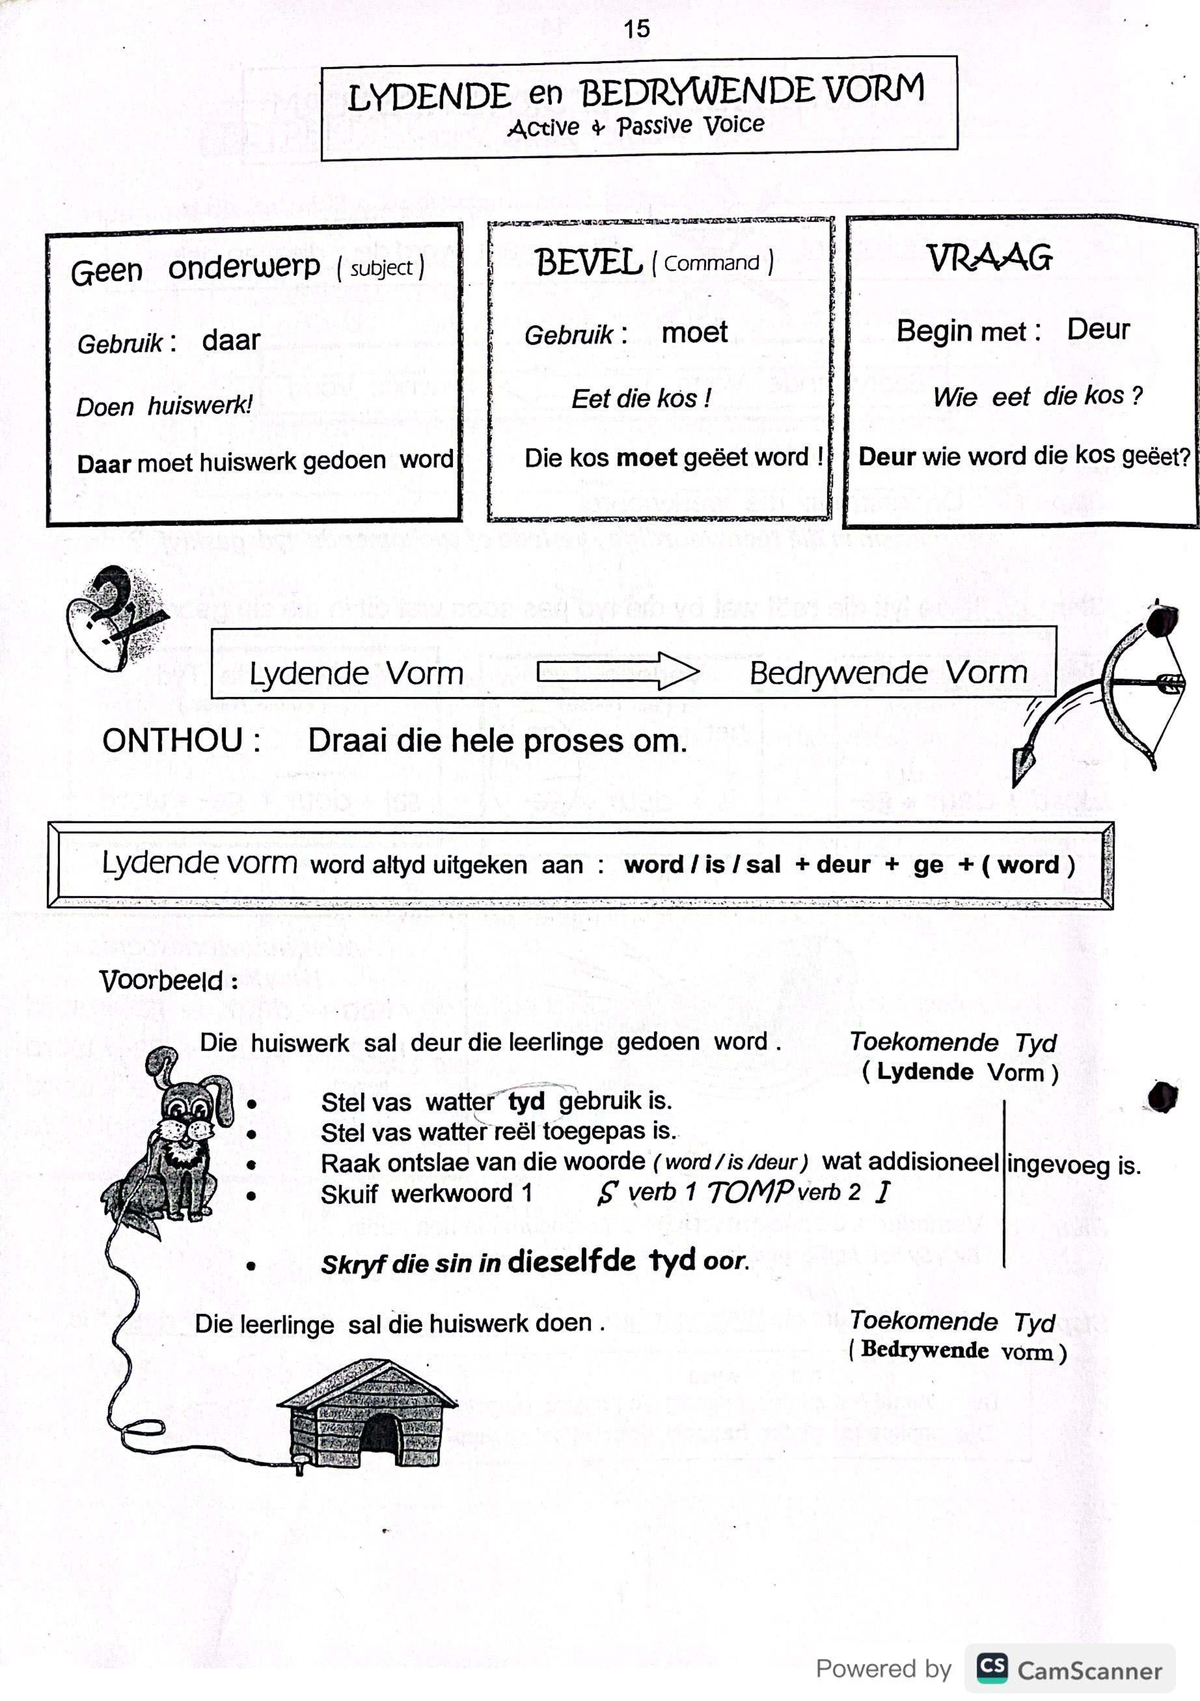 15
LYDENDE en BEDRYWENDE VORM
Active & Passive Voice
Geen onderwerp ( subject )
Gebruik : daar
Doen huiswerk!
Daar moet huiswerk gedoen word
BEVEL ( Command )
Gebruik : moet
Eet die kos !
Die kos moet geëet word !
VRAAG
Begin met : Deur
Wie eet die kos ?
Deur wie word die kos geëet?
Lydende Vorm Bedrywende Vorm
ONTHOU : Draai die hele proses om.
Lydende vorm word altyd uitgeken aan : word / is / sal + deur + ge + ( word )
Voorbeeld :
Die huiswerk sal deur die leerlinge gedoen word . Toekomende Tyd
( Lydende Vorm )
• Stel vas watter tyd gebruik is.
• Stel vas watter reël toegepas is.
• Raak ontslae van die woorde ( word / is /deur ) wat addisioneel ingevoeg is.
• Skuif werkwoord 1 S verb 1 TOMP verb 2 I
• Skryf die sin in dieselfde tyd oor.
Die leerlinge sal die huiswerk doen . Toekomende Tyd
( Bedrywende vorm )
Powered by CS CamScanner